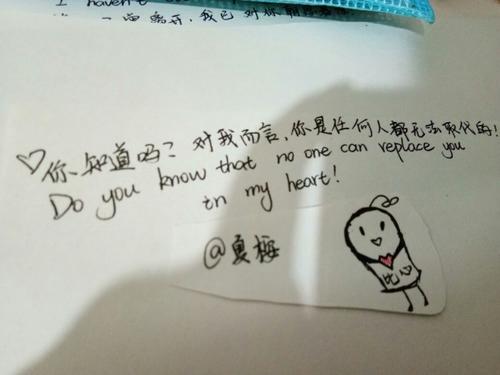 I haven't
离开,我已对你
♡你知道吗?对我而言,你是任何人都无法取代的!
Do you know that no one can replace you
in my heart!
@夏极
比心